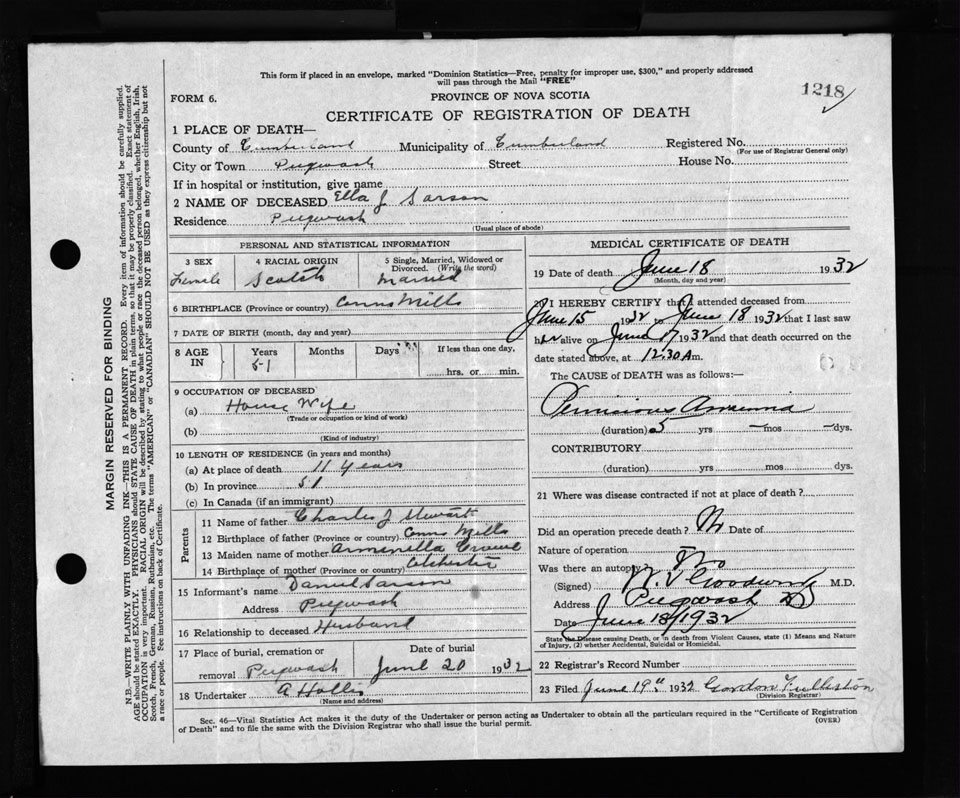 This form if placed in an envelope, marked "Dominion Statistics—Free, penalty for improper use, $300," and properly addressed
will pass through the Mail "FREE"
1218
FORM 6.
PROVINCE OF NOVA SCOTIA
CERTIFICATE OF REGISTRATION OF DEATH
1 PLACE OF DEATH—
County of Cumberland Municipality of Cumberland Registered No.
(For use of Registrar General only)
City or Town Pugwash Street House No.
If in hospital or institution, give name
2 NAME OF DECEASED Ella J Sarson
Residence Pugwash
(Usual place of abode)
PERSONAL AND STATISTICAL INFORMATION
3 SEX 4 RACIAL ORIGIN 5 Single, Married, Widowed or Divorced. (Write the word)
Female Scotch Married
6 BIRTHPLACE (Province or country) Conns Mills
7 DATE OF BIRTH (month, day and year)
8 AGE IN Years Months Days If less than one day,
51 hrs. or min.
9 OCCUPATION OF DECEASED
(a) House Wife
(Trade or occupation or kind of work)
(b)
(Kind of industry)
10 LENGTH OF RESIDENCE (in years and months)
(a) At place of death 11 years
(b) In province 51
(c) In Canada (if an immigrant)
Parents
11 Name of father Charles J Stewart
12 Birthplace of father (Province or country) Conns Mills
13 Maiden name of mother
14 Birthplace of mother (Province or country) Colchester
15 Informant's name Daniel Sarson
Address Pugwash
16 Relationship to deceased Husband
17 Place of burial, cremation or removal Pugwash Date of burial June 20 1932
18 Undertaker A Hollis
(Name and address)
MEDICAL CERTIFICATE OF DEATH
19 Date of death June 18 1932
(Month, day and year)
20 I HEREBY CERTIFY that I attended deceased from
June 15 1932 to June 18 1932 that I last saw
her alive on June 17 1932 and that death occurred on the
date stated above, at 12.30 A m.
The CAUSE of DEATH was as follows:—
Pernicious Anaemia
(duration) 5 yrs — mos — dys.
CONTRIBUTORY
(duration) yrs. mos. dys.
21 Where was disease contracted if not at place of death?
Did an operation precede death? No Date of
Nature of operation
Was there an autopsy? No
(Signed) M.D.
Address Pugwash
Date June 18/1932
State the Disease causing Death, or in death from Violent Causes, state (1) Means and Nature
of Injury, (2) whether Accidental, Suicidal or Homicidal.
22 Registrar's Record Number
23 Filed June 19th 1932 Gordon
(Division Registrar)
Sec. 46—Vital Statistics Act makes it the duty of the Undertaker or person acting as Undertaker to obtain all the particulars required in the "Certificate of Registration
of Death" and to file the same with the Division Registrar who shall issue the burial permit.
(OVER)
MARGIN RESERVED FOR BINDING
N.B.—WRITE PLAINLY WITH UNFADING INK—THIS IS A PERMANENT RECORD. Every item of information should be carefully supplied.
AGE should be stated EXACTLY. PHYSICIANS should STATE CAUSE OF DEATH in plain terms, so that it may be properly classified. Exact statement of
OCCUPATION is very important. RACIAL ORIGIN will be described by stating to what people or race the deceased person belonged, whether English, Irish,
Scotch, French, German, Russian, Ruthenian, etc. The terms "AMERICAN" or "CANADIAN" SHOULD NOT BE USED as they express citizenship but not
a race or people. See instructions on back of Certificate.